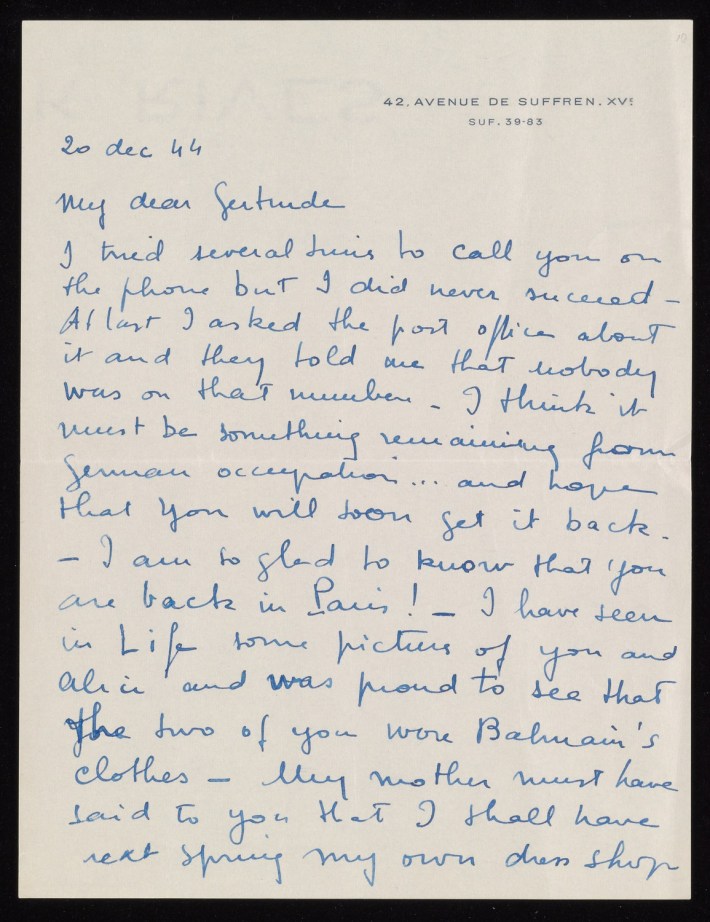 42, AVENUE DE SUFFREN. XVE
SUF. 39-83
20 dec 44
My dear Gertrude
I tried several times to call you on
the phone but I did never succeed –
At last I asked the post office about
it and they told me that nobody
was on that number – I think it
must be something remaining from
German occupation... and hope
that you will soon get it back.
– I am so glad to know that you
are back in Paris! – I have seen
in Life some pictures of you and
Alice and was proud to see that
the two of you wore Balmain's
clothes – My mother must have
said to you that I shall have
next spring my own dress shop